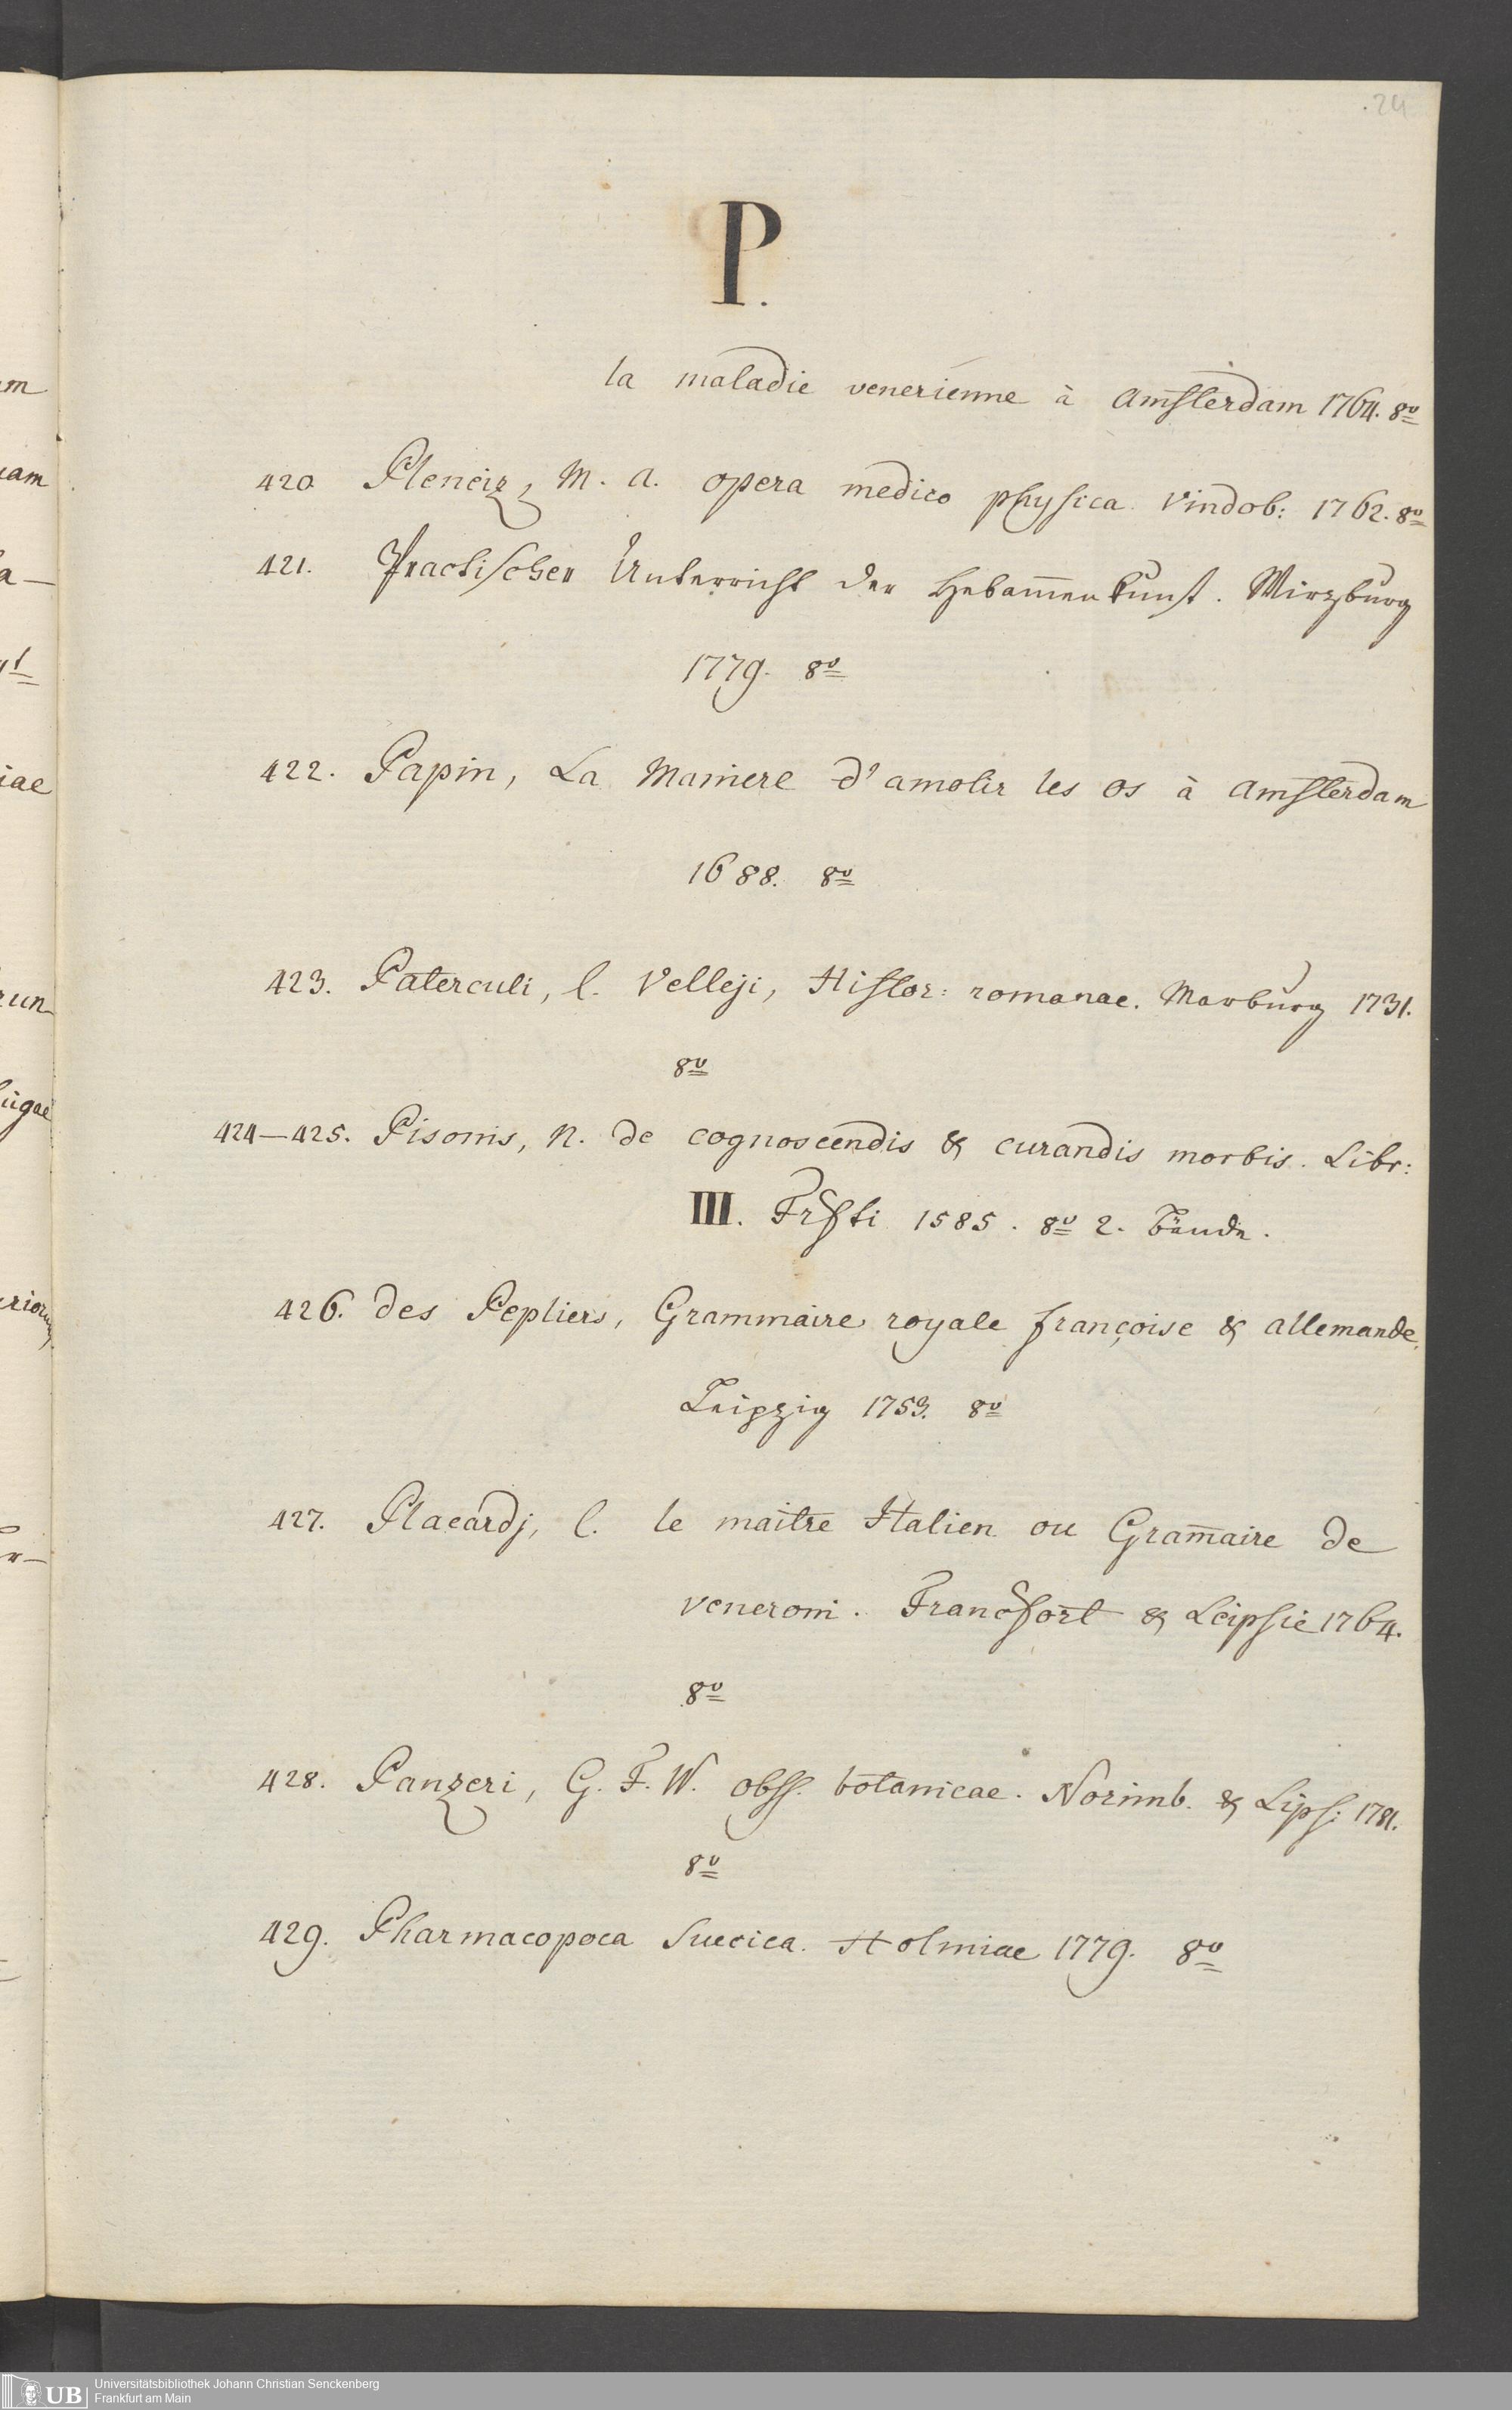 24
P.
la maladie venerienne à Amsterdam 1764. 8º
420. Plenciz, M. A. opera medico physica Vindob: 1762. 8º
421. Practischer Unterricht der Hebam̄en kunst. Wirzburg
1779. 8º
422. Papin, La Maniere d'amolir les os à Amsterdam
1688. 8º
423. Paterculi, C. Velleji, Histor: romanae. Marburg 1731.
8º
424—425. Pisonis, N. de cognoscendis & curandis morbis. Libr:
III. Frfti 1585. 8º 2. Bände.
426. des Pepliers, Grammaire royale françoise & allemande.
Leipzig 1753. 8º
427. Placardj, C. le maitre Italien ou Gram̄aire de
Veneroni. Francfort & Leipsic 1764.
8º
428. Panzeri, G. F. W. obss. botanicae. Norimb. & Lips: 1781.
8º
429. Pharmacopoea Suecica. Holmiae 1779. 8º
UB
Universitätsbibliothek Johann Christian Senckenberg
Frankfurt am Main